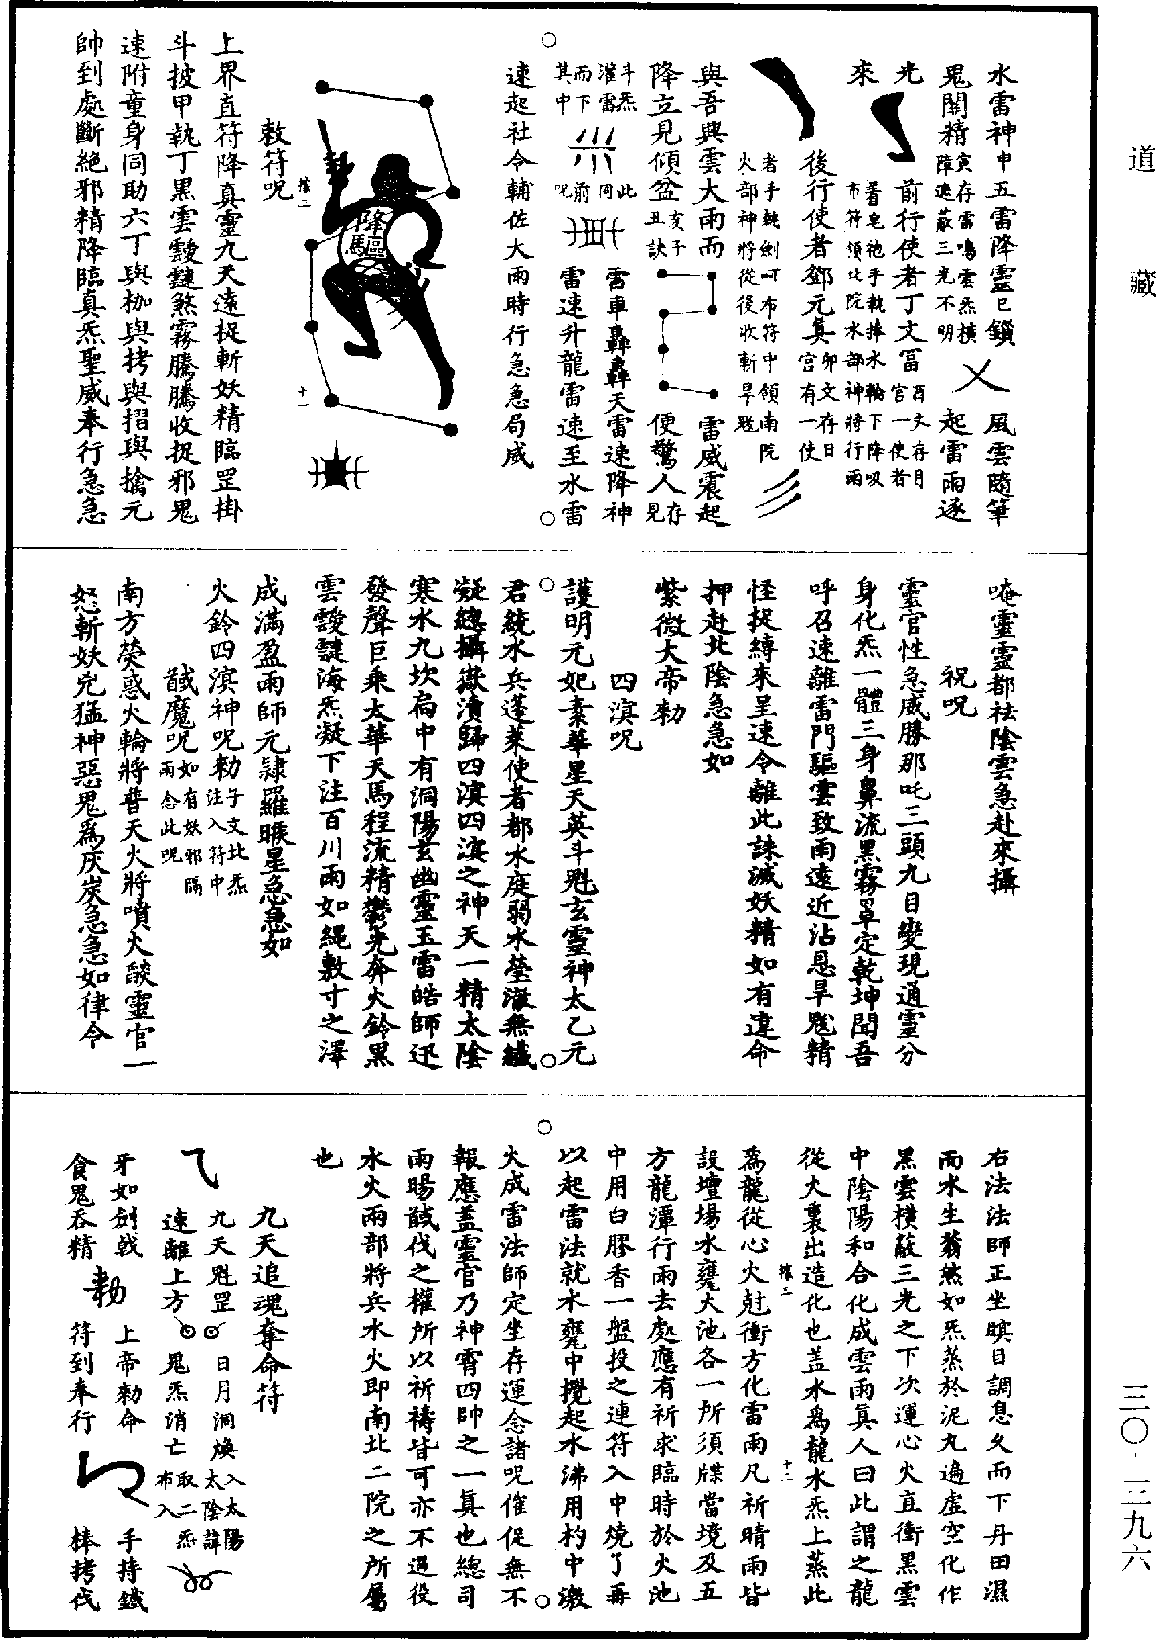 道藏
三〇·二九六
水雷神中五雷降靈已鎖
風雲隨筆
鬼關精
寅存雷鳴雲炁橫
障遮蔽三光不明
起雷雨逐
光
前行使者丁文冨
酉文存月
宮一使者
來
著皂袍手執捧水輪下降吸
布符領北院水部神將行雨
後行使者鄧元真
卯文存日
宮有一使
者手執劍叫布符中領南院
火部神將從後收斬旱魃
與吾興雲大雨而
雷威震起
降立見傾盆
亥子
丑訣
便驚人
存
見
斗炁
灌雷
而下
其中
此
同
前
呪
雷車轟轟天雷速降神
雷速升龍雷速至水雷
速起社令輔佐大雨時行急急局威
降驅
敕符呪
上界直符降真靈九天遠捉斬妖精臨罡掛
斗披甲執丁黑雲靉靆煞霧騰騰收捉邪鬼
速附童身同助六丁與枷與拷與招與擒元
帥到處斷絕邪精降臨真炁聖威奉行急急
唵靈靈都祛陰雲急赴來攝
祝呪
靈官性急威勝那吒三頭九目變現通靈分
身化炁一體三身鼻流黑霧罩定乾坤聞吾
呼召速離雷門驅雲致雨遠近沾恩旱魃精
怪捉縛來呈速令離此誅滅妖精如有違命
押赴北陰急急如
紫微大帝勑
四溟呪
護明元妃素華星天英斗魁玄靈神太乙元
君統水兵蓬萊使者都水庭弱水瑩澂無纖
凝總攝嶽瀆歸四溟四溟之神天一精太陰
寒水九坎扃中有洞陽玄幽靈玉雷皓師迅
發聲巨乘太華天馬程流精鬱光奔火鈴黑
雲靉靆海炁凝下注百川雨如繩敷寸之澤
成滿盈雨師元隸羅睺星急急如
火鈴四溟神呪勑
子文北炁
注入符中
馘魔呪
如有妖邪隔
雨念此呪
南方熒惑火輪將普天火將噴火燄靈官一
怒斬妖兇猛神惡鬼爲灰炭急急如律令
右法法師正坐瞑目調息久而下丹田濕
而水生蓊然如炁蒸於泥丸遍虛空化作
黑雲橫蔽三光之下次運心火直衝黑雲
中陰陽和合化成雲雨真人曰此謂之龍
從火裏出造化也蓋水爲龍水炁上蒸此
爲龍從心火尅衝方化雷雨凡祈晴雨皆
設壇場水甕大池各一所須牒當境及五
方龍潭行雨去處應有祈求臨時於火池
中用白膠香一盤投之連符入中燒了再
以起雷法就水甕中攪起水沸用杓中激
大成雷法師定坐存運念諸呪催促無不
報應蓋靈官乃神霄四帥之一真也總司
雨暘馘伐之權所以祈禱皆可亦不過役
水火兩部將兵水火即南北二院之所屬
也
九天追魂奪命符
九天魁罡
日月洞煥
入太陽
太陰諱
速離上方
鬼炁消亡
取二炁
布入
牙如劍戟
上帝勑命
手持鐵
食鬼吞精
勑
符到奉行
棒拷伐